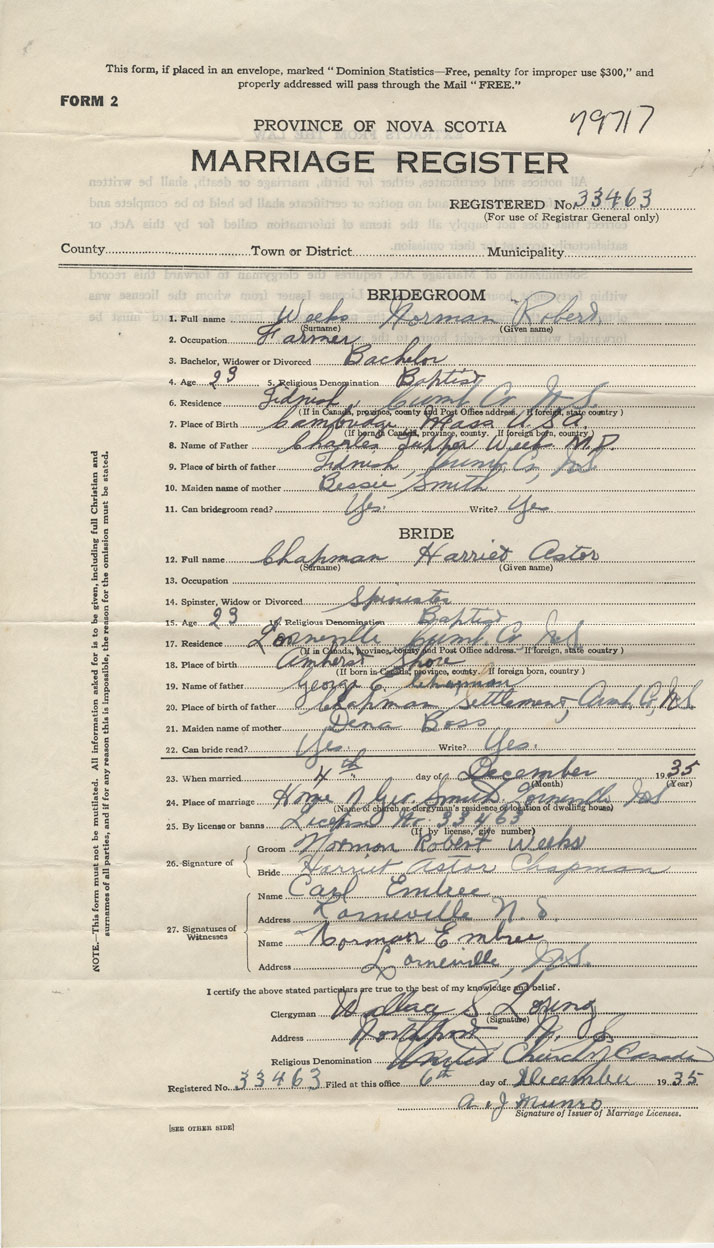 This form, if placed in an envelope, marked "Dominion Statistics—Free, penalty for improper use $300," and
properly addressed will pass through the Mail "FREE."
FORM 2
PROVINCE OF NOVA SCOTIA
79717
MARRIAGE REGISTER
REGISTERED No. 33463
(For use of Registrar General only)
County Town or District Municipality
BRIDEGROOM
1. Full name Weeks Norman Robert
(Surname) (Given name)
2. Occupation Farmer
3. Bachelor, Widower or Divorced Bachelor
4. Age 23 5. Religious Denomination Baptist
6. Residence Tidnish, Cumb. Co. N.S.
(If in Canada, province, county and Post Office address. If foreign, state country)
7. Place of Birth Cambridge Mass U.S.A.
(If born in Canada, province, county. If foreign born, country)
8. Name of Father Charles Tupper Weeks M.D.
9. Place of birth of father Tidnish, Cumb. Co., N.S.
10. Maiden name of mother Bessie Smith
11. Can bridegroom read? Yes. Write? Yes
BRIDE
12. Full name Chapman Harriet Astor
(Surname) (Given name)
13. Occupation
14. Spinster, Widow or Divorced Spinster
15. Age 23 16. Religious Denomination Baptist
17. Residence Lorneville Cumb. Co. N.S.
(If in Canada, province, county and Post Office address. If foreign, state country)
18. Place of birth Amherst Shore
(If born in Canada, province, county. If foreign born, country)
19. Name of father George E. Chapman
20. Place of birth of father Chapman Settlement, Cumb. Co, N.S.
21. Maiden name of mother Dena Boss
22. Can bride read? Yes. Write? Yes.
23. When married 4th day of December 1935
(Month) (Year)
24. Place of marriage Home of Geo. Smith Lorneville N.S
(Name of church or clergyman's residence or location of dwelling house)
25. By license or banns License No. 33463
(If by license, give number)
26. Signature of
Groom Norman Robert Weeks
Bride Harriet Astor Chapman
27. Signatures of Witnesses
Name Carl Embree
Address Lorneville N.S.
Name Norman Embree
Address Lorneville, N.S.
I certify the above stated particulars are true to the best of my knowledge and belief.
Clergyman Wallace S. Loung
(Signature)
Address Northport N.S.
Religious Denomination United Church of Canada
Registered No. 33463 Filed at this office 6th day of December 1935
A. J. Munro
Signature of Issuer of Marriage Licenses.
[SEE OTHER SIDE]
NOTE.—This form must not be mutilated. All information asked for is to be given, including full Christian and
surnames of all parties, and if for any reason this is impossible, the reason for the omission must be stated.